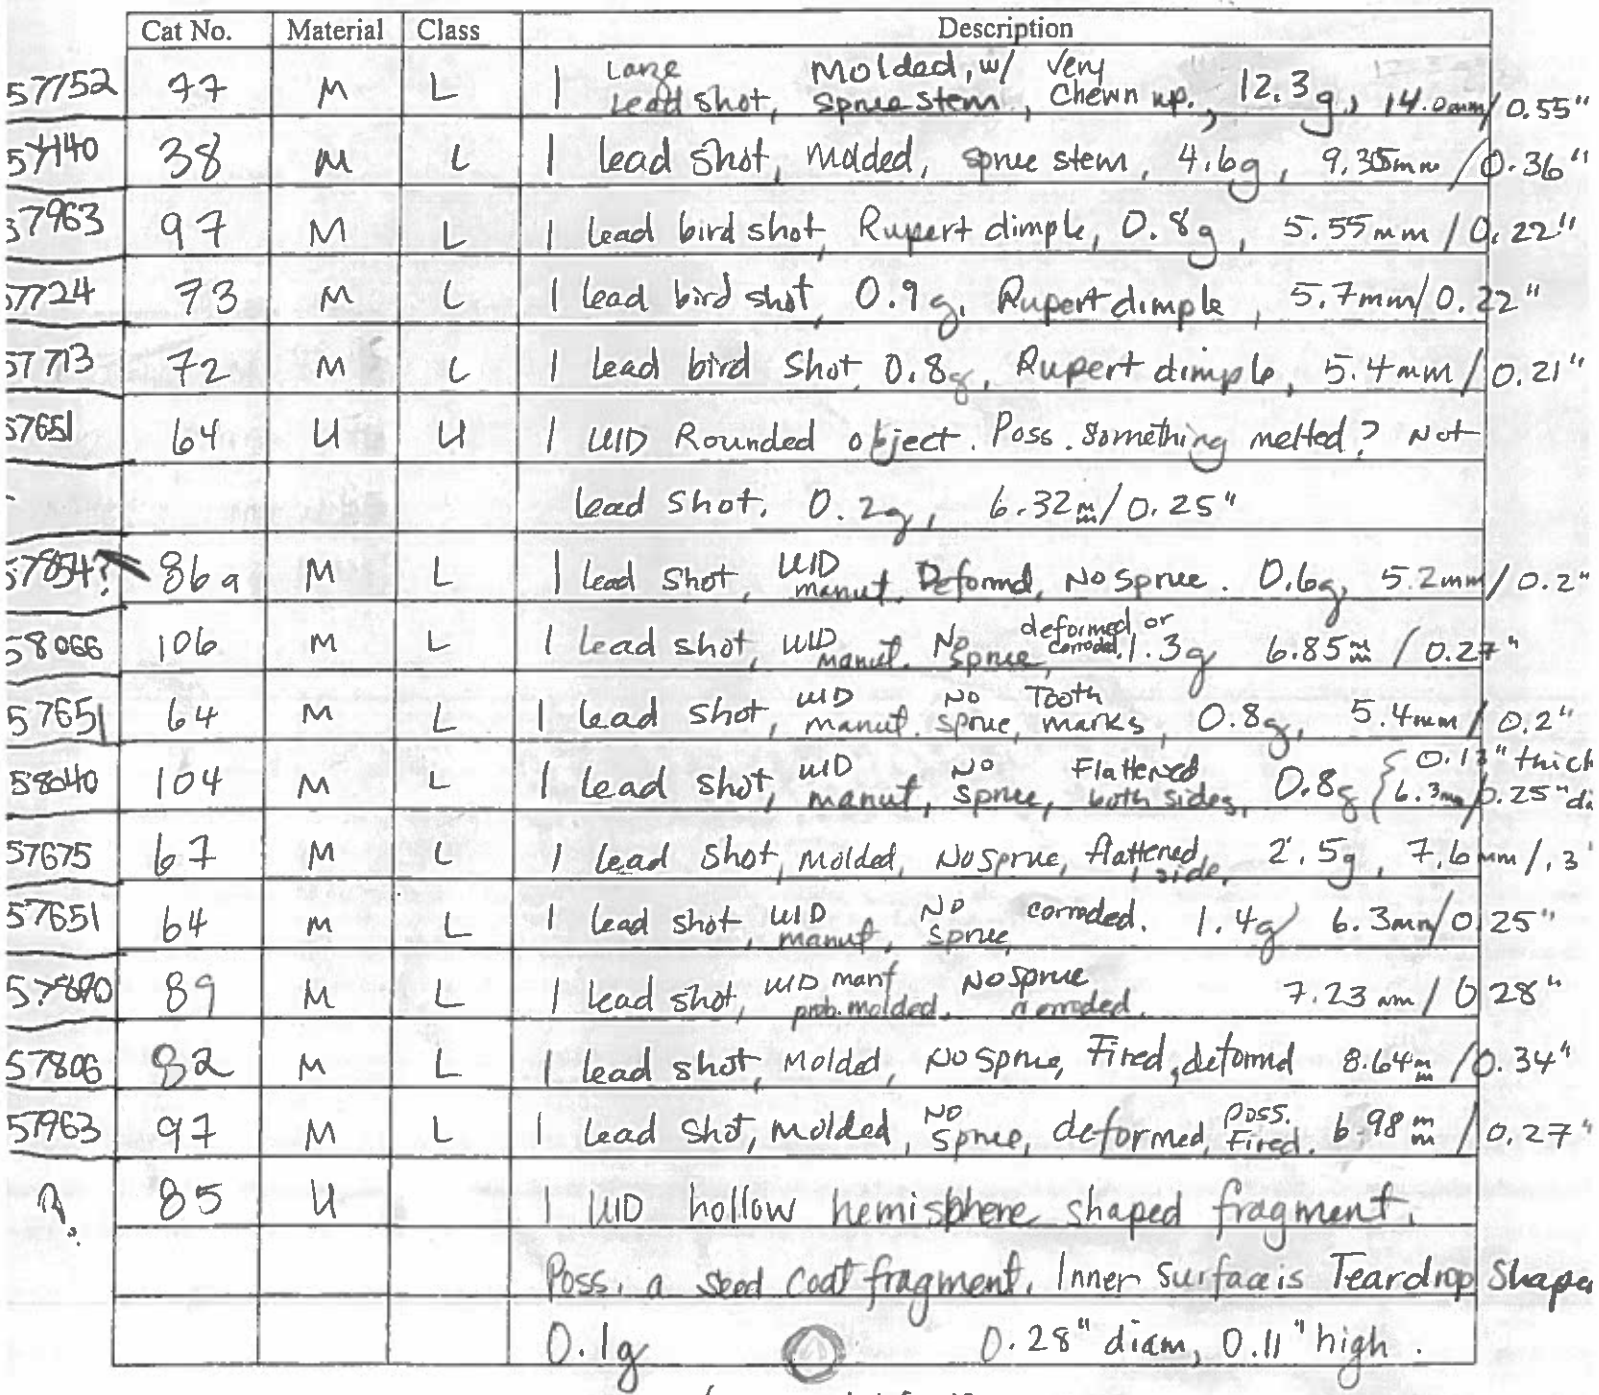 Cat No. Material Class Description
57752 77 M L 1 Large Lead shot, Molded, w/ Sprue stem, Very Chewn up., 12.3g, 14.0mm/0.55"
38 M L 1 lead shot, Molded, sprue stem, 4.6g, 9.35mm/0.36"
97 M L 1 lead bird shot, Rupert dimple, 0.8g, 5.55mm/0.22"
73 M L 1 lead bird shot, 0.9g, Rupert dimple, 5.7mm/0.22"
57713 72 M L 1 lead bird Shot, 0.8g, Rupert dimple, 5.4mm/0.21"
57651 64 U U 1 UID Rounded object. Poss. Something melted? Not
lead Shot. 0.2g, 6.32mm/0.25"
57854? 86a M L 1 lead Shot, UID manuf. Deformd, No sprue. 0.6g, 5.2mm/0.2"
58066 106 M L 1 lead shot, UID manuf. No Sprue, deformed or corroded. 1.3g 6.85mm/0.27"
57651 64 M L 1 lead shot, UID manuf. No sprue, Tooth marks, 0.8g, 5.4mm/0.2"
58040 104 M L 1 lead shot, UID manuf, No sprue, Flattened both sides, 0.8g { thick 6.3mm/0.25"
57675 67 M L 1 lead Shot, Molded, No sprue, flattened side. 2.5g, 7.6mm/.3
57651 64 M L 1 lead shot, UID manuf, No sprue, corroded. 1.4g 6.3mm/0.25"
89 M L 1 lead shot, UID manf prob. molded. No sprue corroded. 7.23mm/0.28"
57806 82 M L 1 lead shot, Molded, No sprue, Fired, deformd 8.64mm/0.34"
57963 97 M L 1 lead shot, molded, No Sprue, deformed, Poss. Fired. 6.98mm/0.27"
?. 85 U 1 UID hollow hemisphere shaped fragment.
Poss. a seed coat fragment. Inner Surface is Teardrop Shape
0.1g 0.28" diam, 0.11" high.